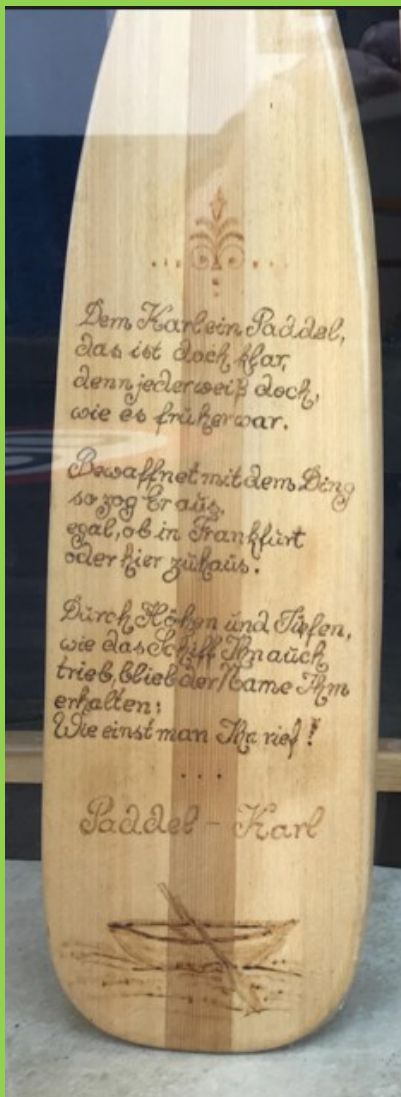 Dem Karl ein Paddel,
das ist doch klar,
denn jeder weiß doch,
wie es früher war.
Bewaffnet mit dem Ding
so zog Er aus,
egal, ob in Frankfurt
oder hier zuhaus.
Durch Höhen und Tiefen,
wie das Schiff Ihn auch
trieb, blieb der Name Ihm
erhalten:
Wie einst man Ihn rief!
...
Paddel - Karl